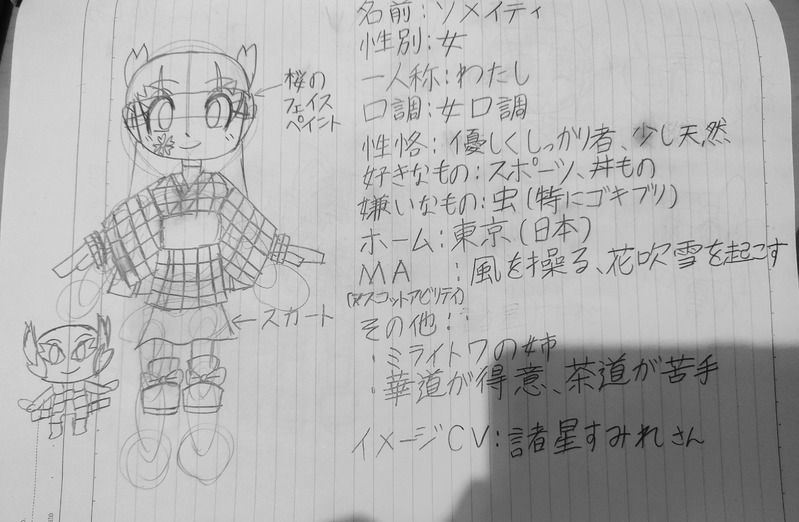 名前:ソメイティ
性別:女
一人称:わたし
口調:女口調
性格:優しくしっかり者、少し天然
好きなもの:スポーツ、丼もの
嫌いなもの:虫(特にゴキブリ)
ホーム:東京(日本)
MA:風を操る、花吹雪を起こす
(マスコットアビリティ)
その他:
・ミライトワの姉
・華道が得意、茶道が苦手
イメージCV:諸星すみれさん
桜の
フェイス
ペイント
スカート